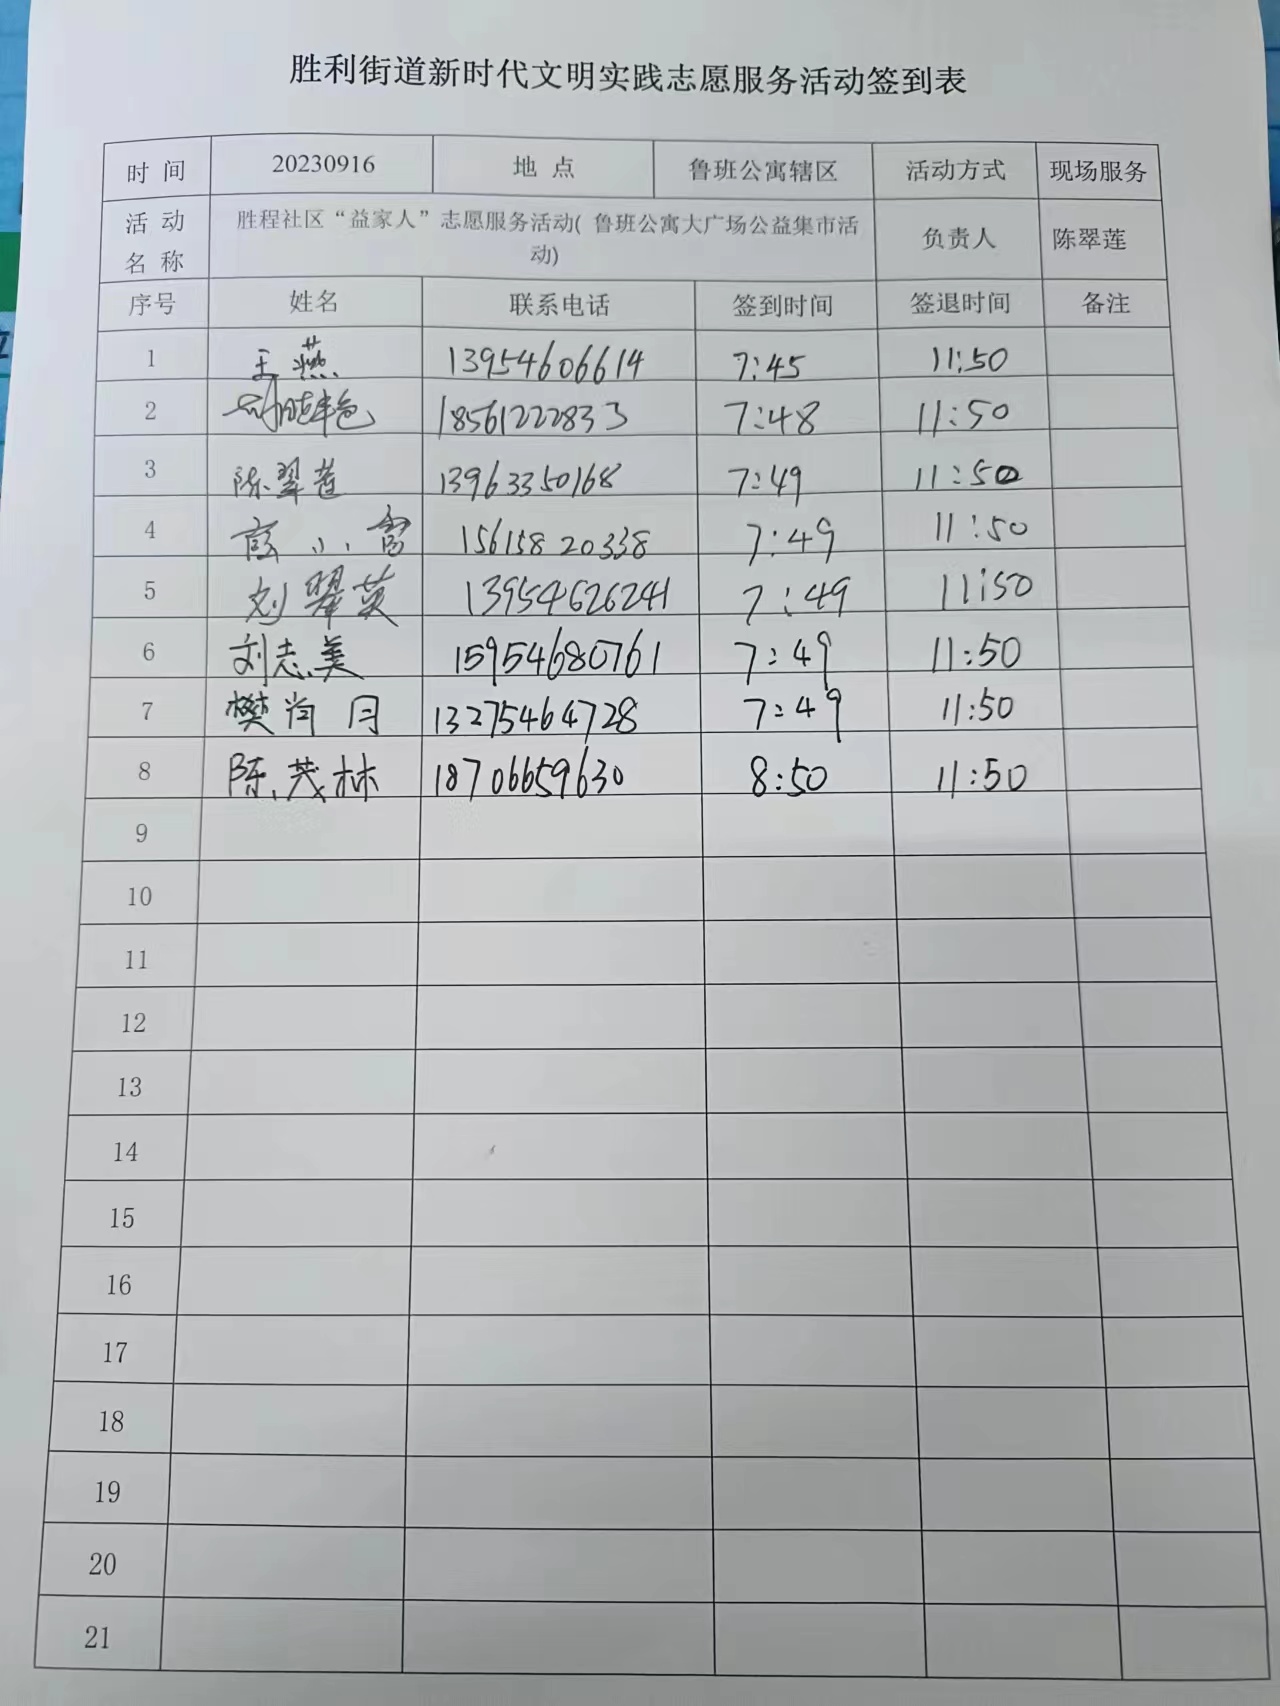 胜利街道新时代文明实践志愿服务活动签到表
时 间 20230916 地 点 鲁班公寓辖区 活动方式 现场服务
活 动 名 称 胜程社区“益家人”志愿服务活动( 鲁班公寓大广场公益集市活动) 负责人 陈翠莲
序号 姓名 联系电话 签到时间 签退时间 备注
1 王燕 13954606614 7:45 11:50
2 18561222833 7:48 11:50
3 陈翠莲 13963350168 7:49 11:50
4 小雷 15615820338 7:49 11:50
5 刘翠英 13954626241 7:49 11:50
6 刘志美 15954680761 7:49 11:50
7 樊尚月 13275464728 7:49 11:50
8 陈茂林 18706659630 8:50 11:50
9
10
11
12
13
14
15
16
17
18
19
20
21